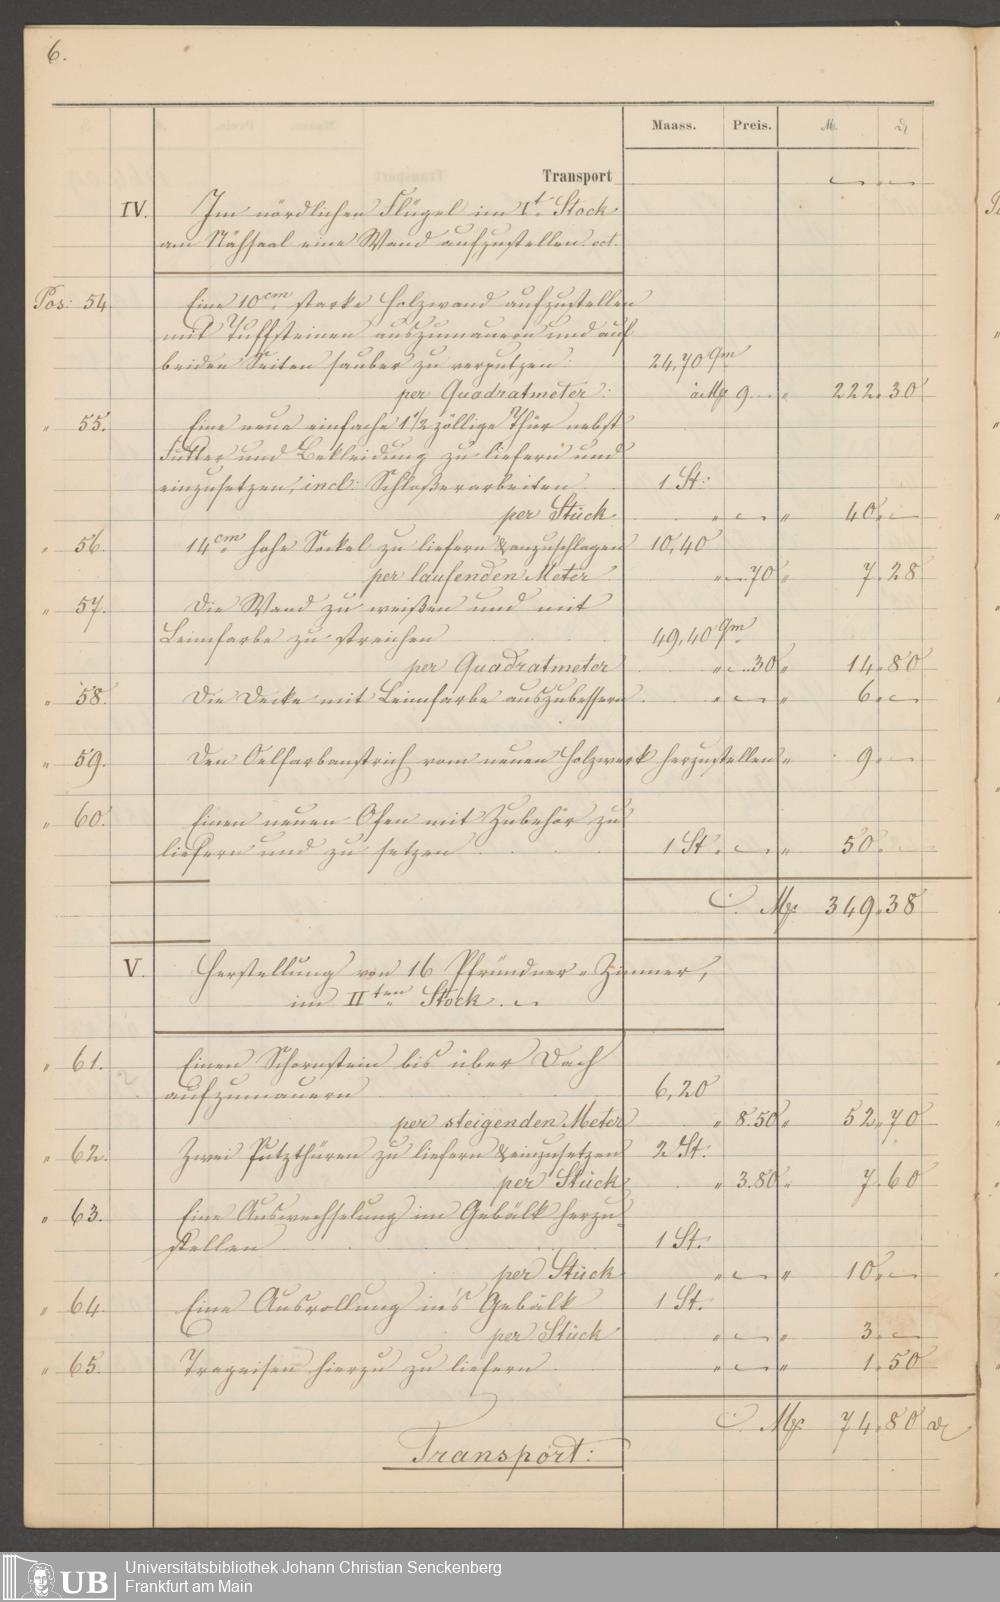 6.
Maass. Preis. M. ₰
Transport
IV. Im nördlichen Flügel im Iᵗ Stock
am Nähsaal eine Wand aufzustellen. ect.
Pos: 54 Eine 10 cm starke Holzwand aufzustellen
mit Tuffsteinen auszumauern und auf
beiden Seiten sauber zu verputzen. 24,70 Qm
per Quadratmeter: à M. 9. — " 222. 30
" 55. Eine neue einfache 1 1/2 zöllige Thür nebst
Futter und Bekleidung zu liefern und
einzusetzen, incl: Schloßerarbeiten 1 St:
per Stück " — " 40. —
" 56. 14 cm hohe Sockel zu liefern & anzuschlagen 10,40
per laufenden Meter " —.70 " 7. 28
" 57. Die Wand zu weißen und mit
Leimfarbe zu streichen 49,40 Qm
per Quadratmeter " —.30 " 14. 80
" 58. Die Decke mit Leimfarbe auszubessern " — " 6. —
" 59. Den Oelfarbanstrich vom neuen Holzwerk herzustellen " 9. —
" 60. Einen neuen Ofen mit Zubehör zu
liefern und zu setzen 1 St. — " 50. —
M. 349. 38
V. Herstellung von 16 Pfründner-Zimmer,
im IIten Stock. —
" 61. Einen Schornstein bis über Dach
aufzumauern 6,20
per steigenden Meter " 8.50 " 52. 70
" 62. Zwei Putzthüren zu liefern & einzusetzen 2 St.
per Stück " 3.80 " 7. 60
" 63. Eine Auswechselung im Gebälk herzu-
stellen 1 St.
per Stück " — " 10. —
" 64. Eine Ausrollung in's Gebälk 1 St.
per Stück " — " 3. —
" 65. Trageisen hierzu zu liefern " — " 1. 50
M. 74. 80 ₰
Transport:
UB
Universitätsbibliothek Johann Christian Senckenberg
Frankfurt am Main